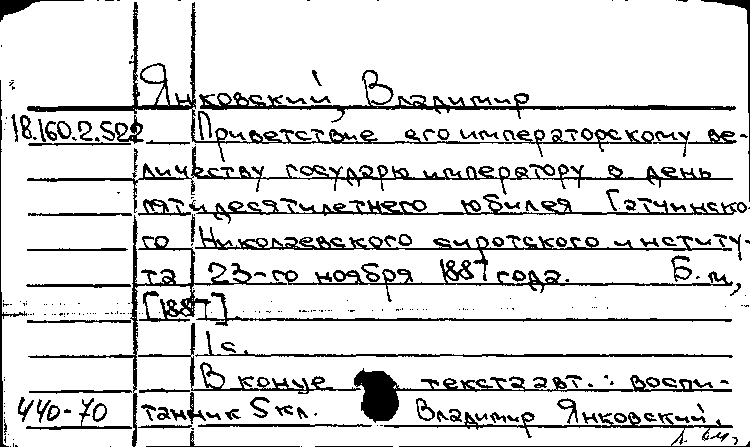 Янковский, Владимир
18.160.2.522 Приветствие его императорскому ве-
личеству государю императору в день
пятидесятилетнего юбилея Гатчинско-
го Николаевского сиротского институ-
та 23-го ноября 1887 года. Б.м,
[1887]
1 с.
В конце текста авт.: воспи-
440-70 танник 5 кл. Владимир Янковский.